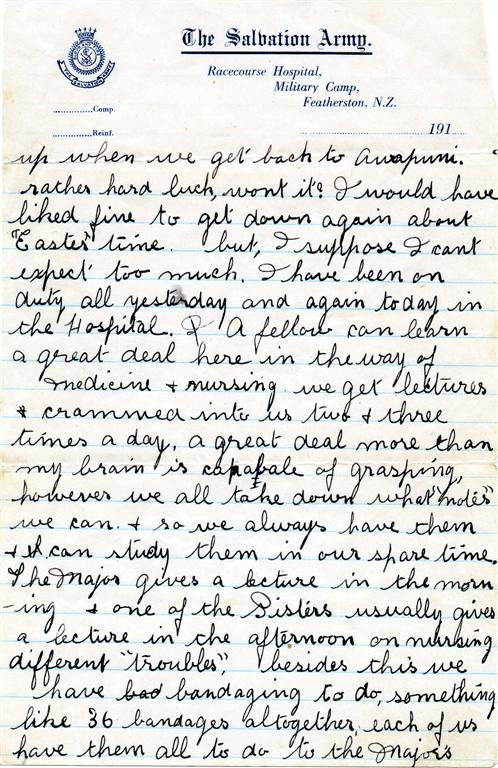 The Salvation Army.
Racecourse Hospital,
Military Camp,
Featherston, N.Z.
THE SALVATION ARMY
..............Comp.
..............Reinf.
.................................. 191.....
up when we get back to Awapuni.
rather hard luck, wont it? I would have
liked fine to get down again about
"Easter" time. but, I suppose I cant
expect too much. I have been on
duty all yesterday and again today in
the Hospital. A fellow can learn
a great deal here in the way of
medicine + nursing. we get lectures
+ crammed into us two + three
times a day, a great deal more than
my brain is capabale of grasping,
however we all take down what "notes"
we can. + so we always have them
+ can study them in our spare time.
The Major gives a lecture in the morn
-ing + one of the Sisters usually gives
a lecture in the afternoon on nursing
different "troubles", besides this we
have bad bandaging to do, something
like 36 bandages altogether, each of us
have them all to do to the Majors